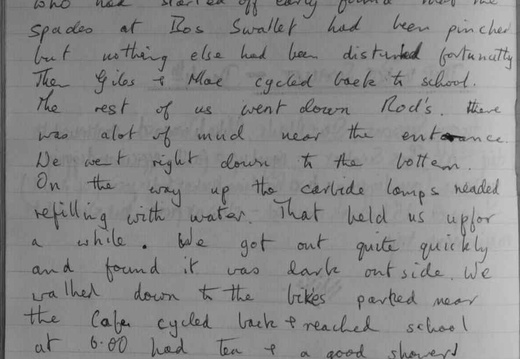 who had started off early found that the
spades at Bos Swallet had been pinched
but nothing else had been disturbed fortunatly
Then Giles & Mac cycled back to school.
The rest of us went down Rod's. there
was alot of mud near the entrance.
We went right down to the bottem.
On the way up the carbide lamps needed
refilling with water. That held us up for
a while. We got out quite quickly
and found it was dark outside. We
walked down to the bikes parked near
the Cafe cycled back & reached school
at 6.00 had tea & a good shower